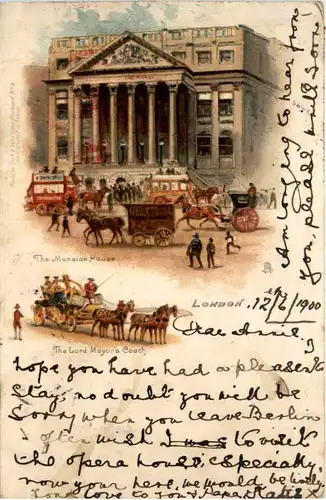 The Mansion House
LONDON. 12/6/1900
The Lord Mayor's Coach
Dear Annie. I
hope you have had a pleasant
stay, no doubt you will be
sorry when you leave Berlin
I often wish I was to visit
the opera house, especially
now your here, we would be lively
Fond love to you & Papa,
Am longing to hear from
you, please write soon